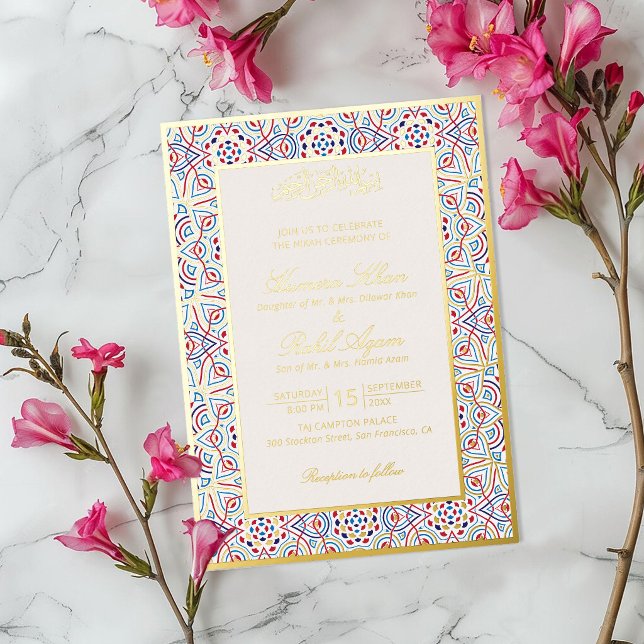 JOIN US TO CELEBRATE
THE NIKAH CEREMONY OF
Humera Khan
Daughter of Mr. & Mrs. Dilawar Khan
&
Rahil Azam
Son of Mr. & Mrs. Hamid Azam
SATURDAY 15 SEPTEMBER
8:00 PM 20XX
TAJ CAMPTON PALACE
300 Stockton Street, San Francisco, CA
Reception to follow